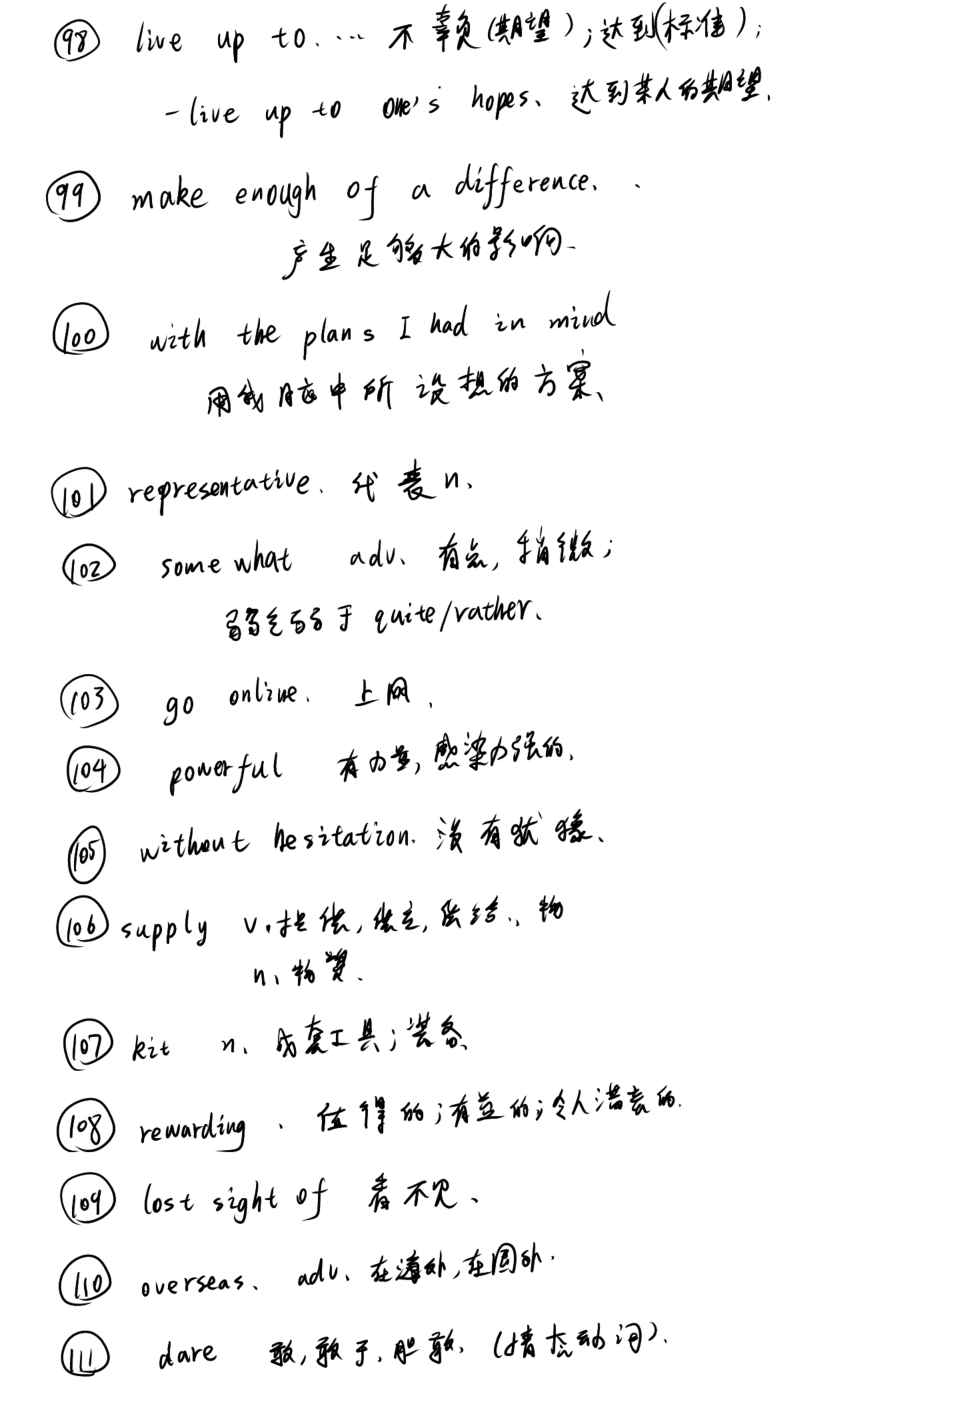 98 live up to.... 不辜负(期望);达到(标准);
-live up to one's hopes、达到某人的期望.
99 make enough of a difference..
产生足够大的影响.
100 with the plans I had in mind
用我脑中所设想的方案、
101 representative. 代表n.
102 somewhat adv、有点,稍微;
弱于quite/rather、
103 go online. 上网.
104 powerful 有力量,感染力强的.
105 without hesitation. 没有犹豫、
106 supply v.提供,供应,供给.,物
n、物资.
107 kit n、成套工具;装备.
108 rewarding、值得的;有益的;令人满意的.
109 lost sight of 看不见、
110 overseas、adv、在海外,在国外.
111 dare 敢,敢于,胆敢.(情态动词).